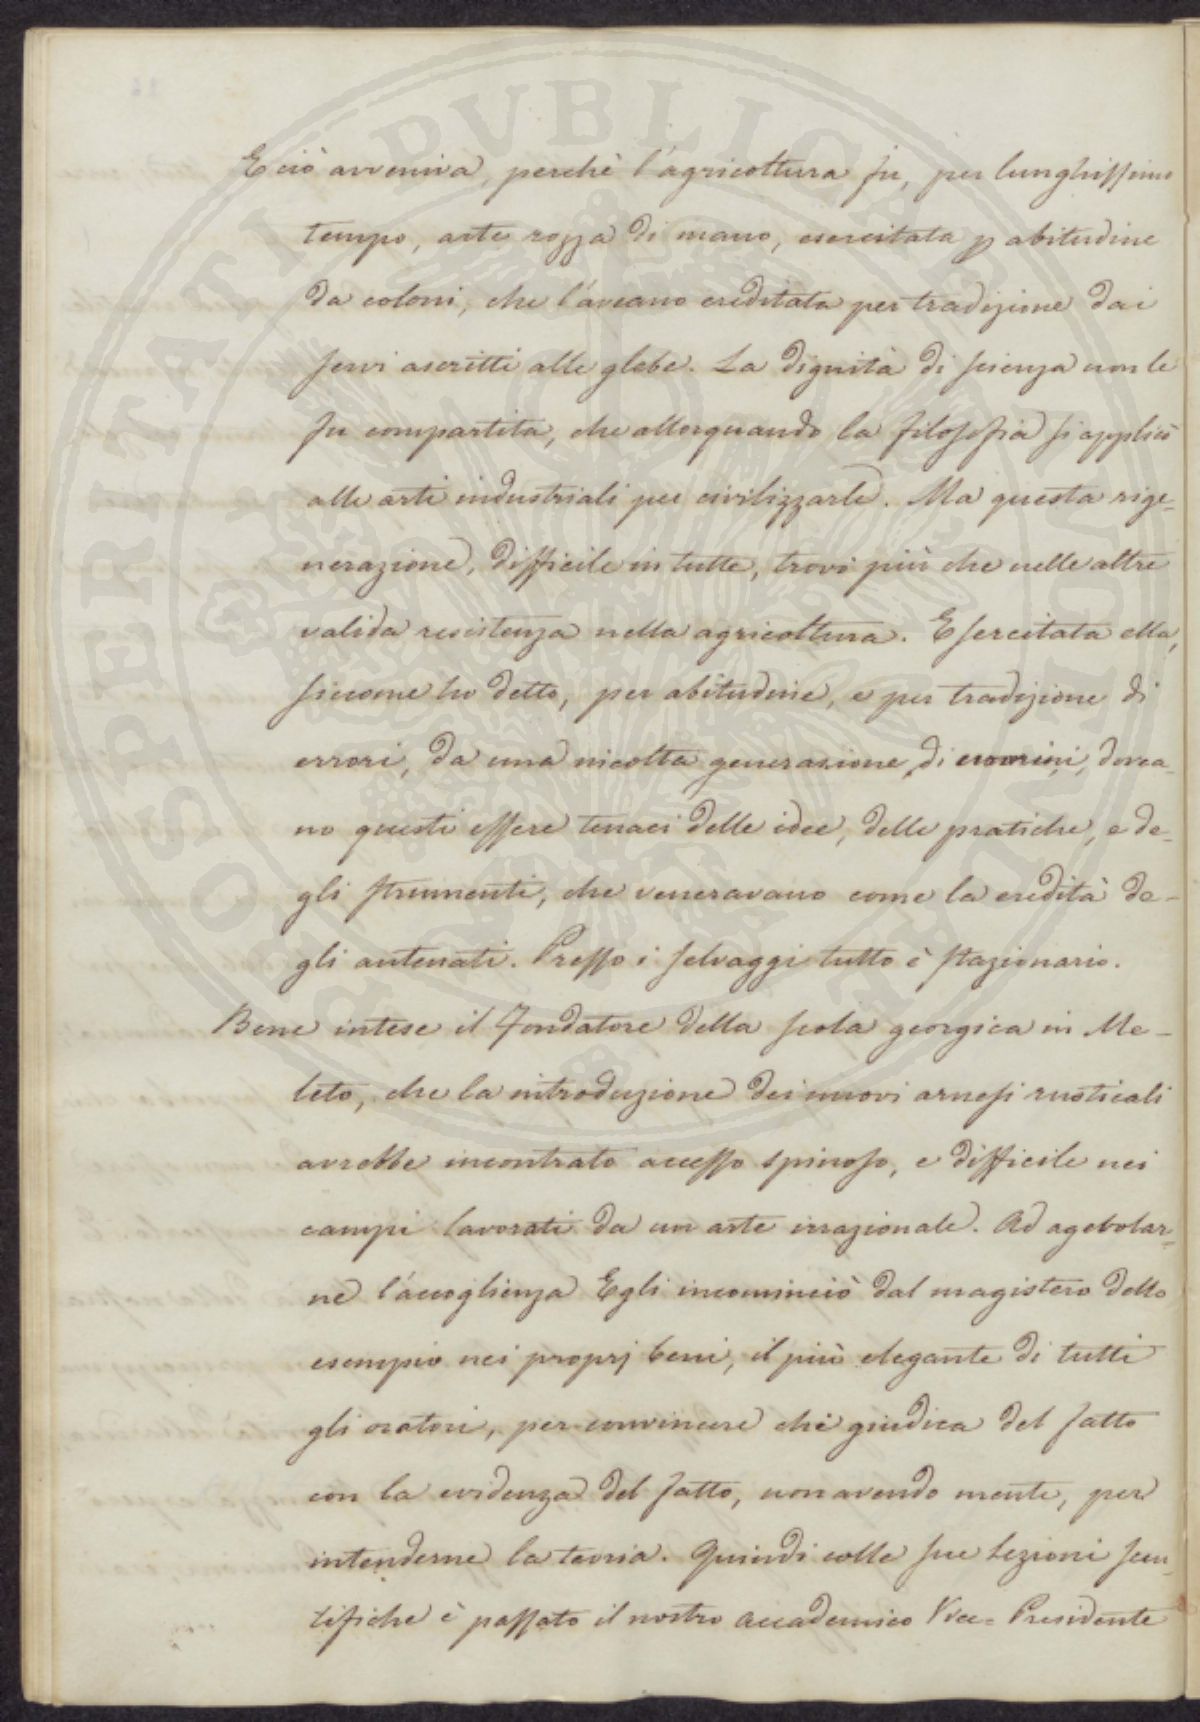 E ciò avveniva, perchè l'agricoltura fu, per lunghissimo
tempo, arte rozza di mano, esercitata p abitudine
da coloni, che l'aveano ereditata per tradizione dai
servi ascritti alle glebe. La dignità di scienza non le
fu compartita, che allorquando la filosofia si applicò
alle arti industriali per civilizzarle. Ma questa rige-
nerazione, difficile in tutte, trovò più che nelle altre
valida resistenza nella agricoltura. Esercitata ella,
siccome ho detto, per abitudine, e per tradizione di
errori, da una incolta generazione di uomini, dovea-
no questi essere tenaci delle idee, delle pratiche, e de-
gli strumenti, che veneravano come la eredità de-
gli antenati. Presso i selvaggi tutto è stazionario.
Bene intese il Fondatore della scola georgica in Me-
leto, che la introduzione dei nuovi arnesi rusticali
avrebbe incontrato accesso spinoso, e difficile nei
campi lavorati da un arte irrazionale. Ad agevolar-
ne l'accoglienza Egli incominciò dal magistero dello
esempio nei proprj beni, il più elegante di tutti
gli oratori, per convincere chi giudica del fatto
con la evidenza del fatto, non avendo mente, per
intenderne la teoria. Quindi colle sue Lezioni scen-
tifiche è passato il nostro Accademico Vice-Presidente
PROSPERITATI PVBLICAE AVGENDAE